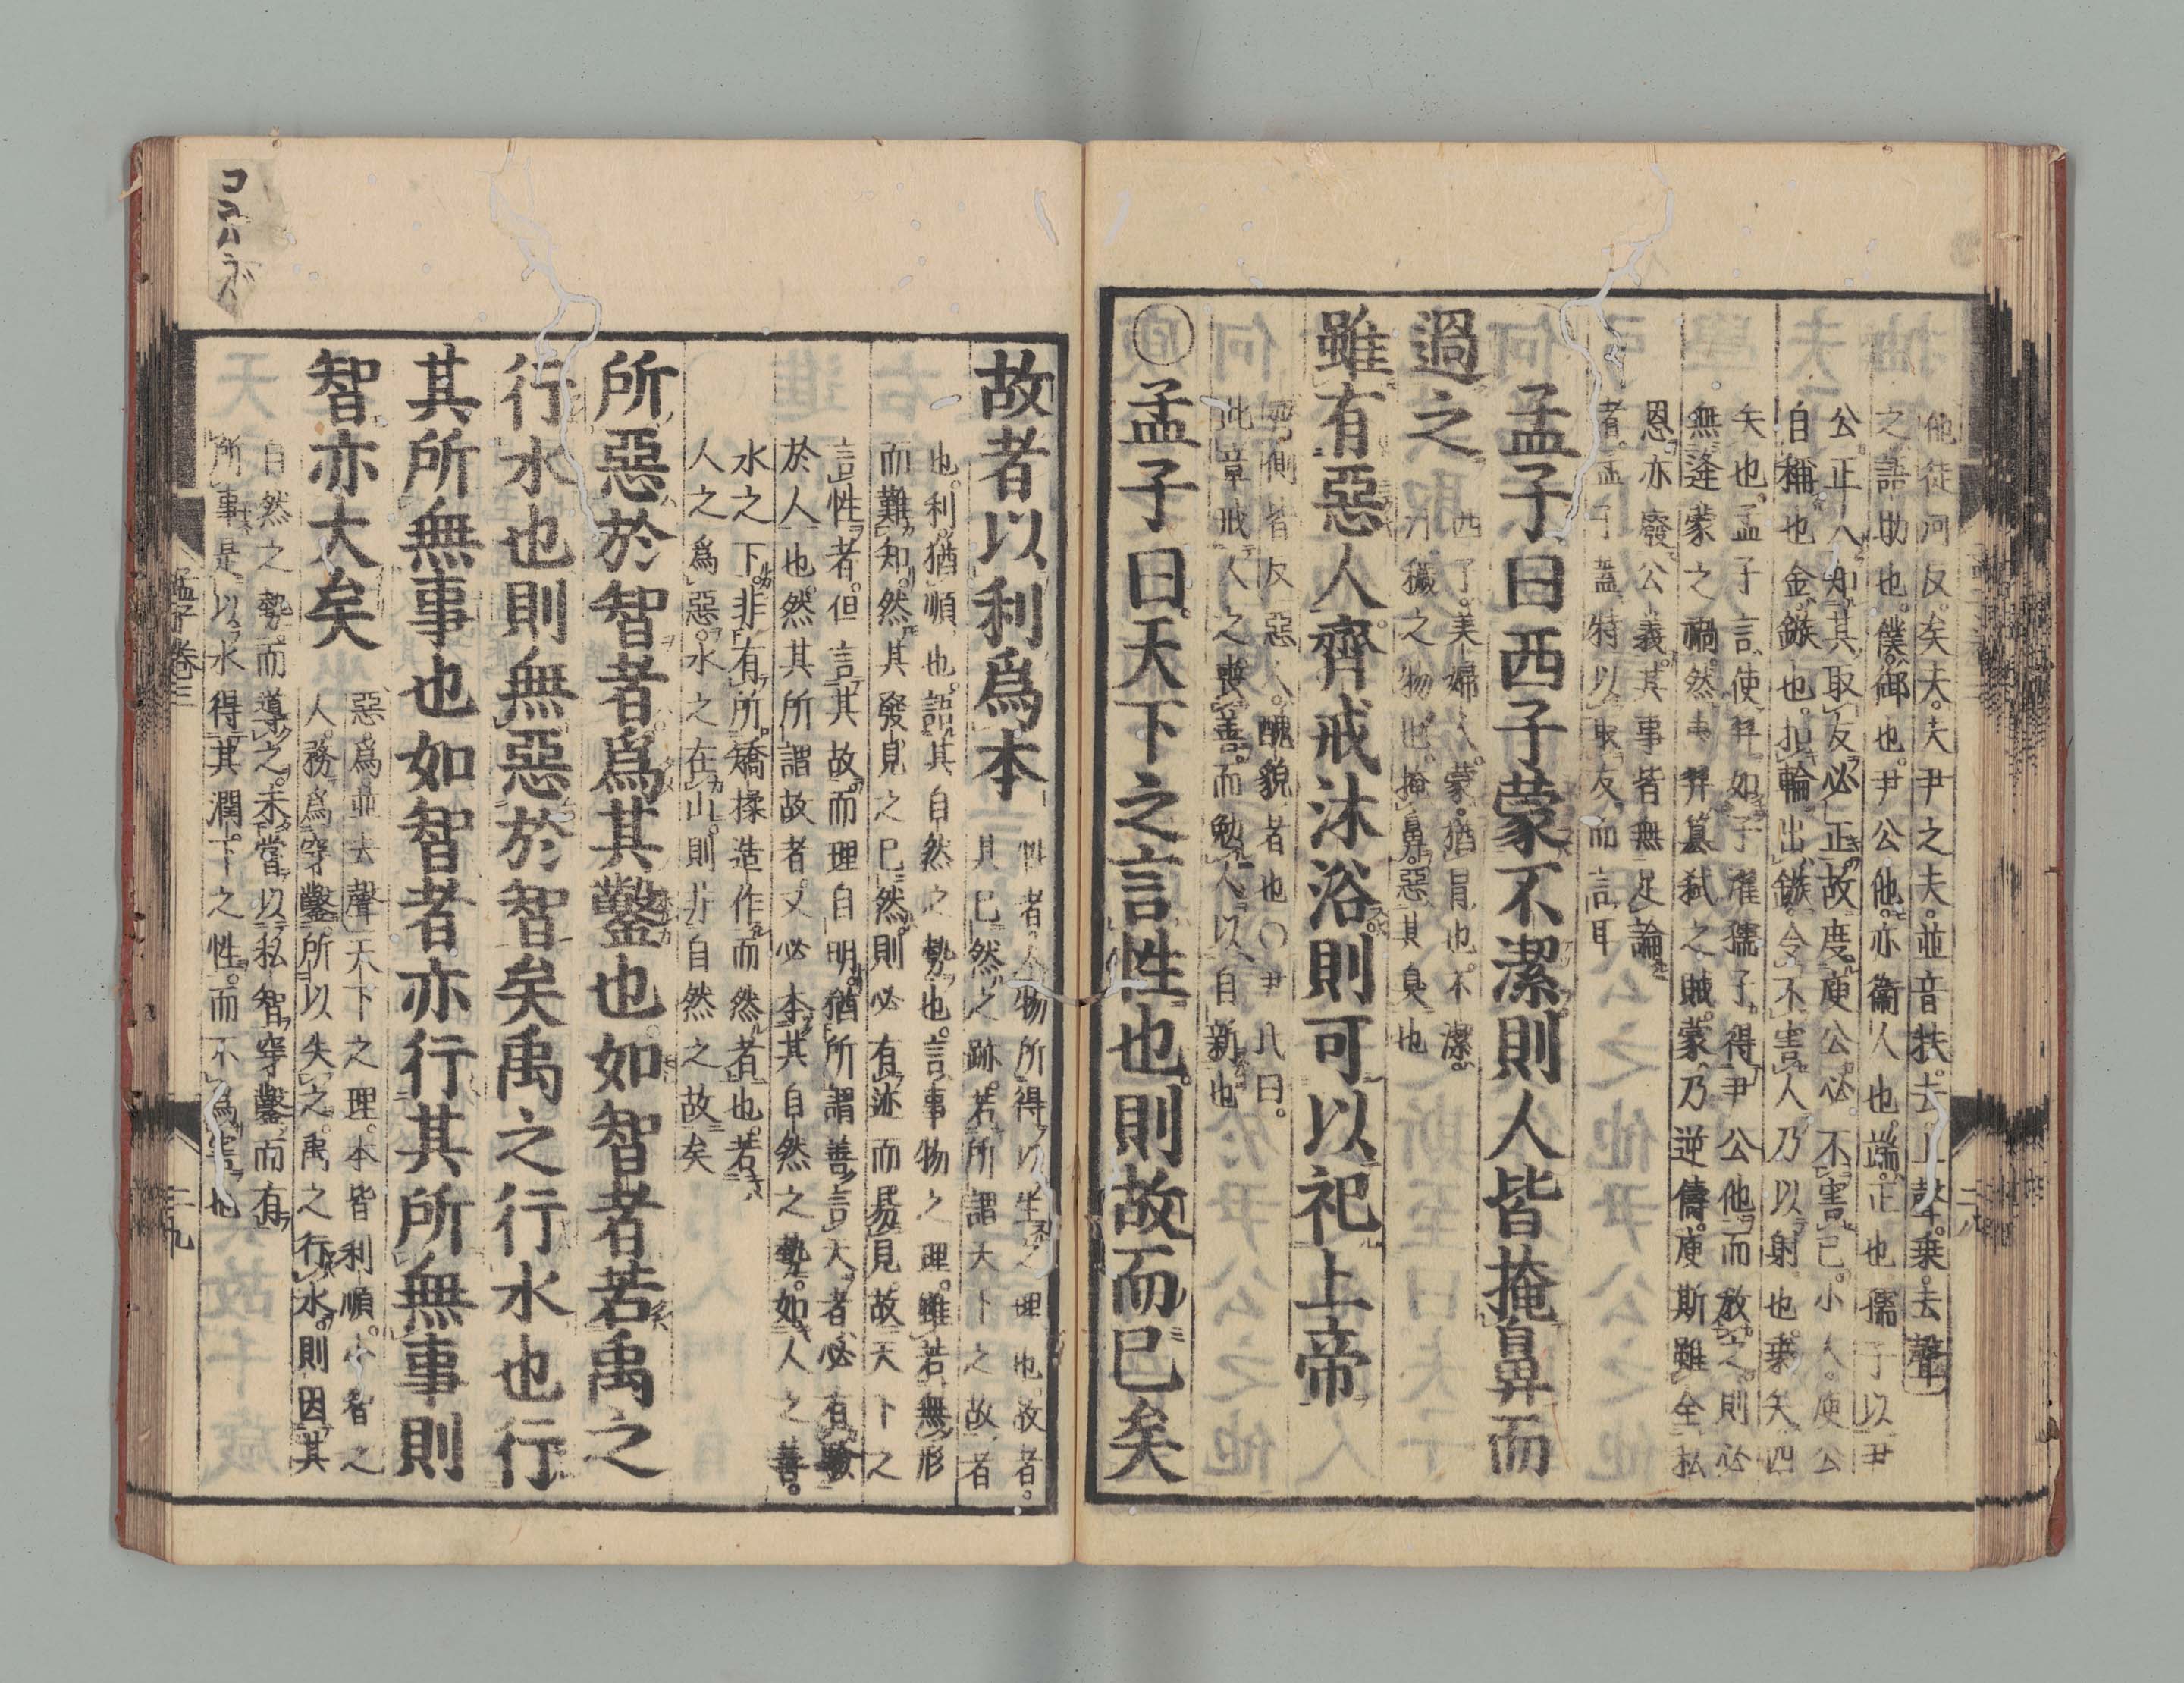 他徒河反。矣夫。夫尹之夫。並音扶。去上聲。乗。去聲
之語助也。僕。御也。尹公他。亦衞人也。端。正也。孺子以尹
公。正人。知其取友必正。故度庾公必不害己。小人。庾公
自稱也。金。鏃也。扣輪出鏃。令不害人。乃以射也。乗矢。四
矢也。孟子言。使羿如子濯孺子。得尹公他而放之。則必
無逄蒙之禍。然夷羿簒弑之賊。蒙乃逆儔。庾斯雖全私
恩。亦廢公義。其事皆無足論
者。孟子蓋特以取友而言耳
孟子曰西子蒙不潔則人皆掩鼻而
過之
西子。美婦人。蒙。猶冒也。不潔。
汙穢之物也。掩鼻。惡其臭也
雖有惡人齊戒沐浴則可以祀上帝
側皆反 惡人。醜貌者也○尹氏曰。
此章戒人之喪善。而勉人以自新也
○孟子曰。天下之言性也。則故而已矣
故者以利爲本
性者。人物所得以生之理也。故者。
其已然之跡。若所謂天下之故者
也。利。猶順也。語其自然之勢也。言事物之理。雖若無形
而難知。然其發見之已然。則必有迹而易見。故天下之
言性者。但言其故。而理自明。猶所謂善言天者。必有驗
於人也。然其所謂故者。又必本其自然之勢。如人之善。
水之下。非有所矯揉造作而然者也。若
人之爲惡。水之在山。則非自然之故矣
所惡於智者。爲其鑿也。如智者若禹之
行水也則無惡於智矣禹之行水也行
其所無事也如智者亦行其所無事則
智。亦大矣
惡。爲並去聲 天下之理。本皆利順。小智之
人。務爲穿鑿。所以失之。禹之行水。則因其
自然之勢。而導之。未嘗以私智穿鑿而有
所事。是以水得其潤下之性。而不爲害也
孟子卷三
二九
二八